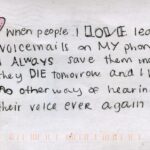 When people I LOVE lea
voicemails on MY phon
I ALWAYS save them in
they DIE tomorrow and I h
NO other way of hearin
their voice ever again